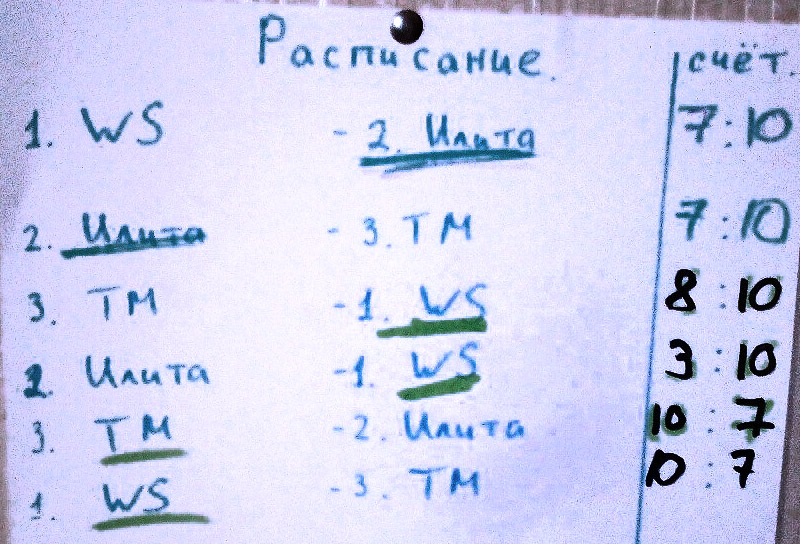 Расписание. счёт.
1. WS - 2. Илита 7:10
2. Илита - 3. ТМ 7:10
3. ТМ - 1. WS 8:10
2. Илита - 1. WS 3:10
3. ТМ - 2. Илита 10:7
1. WS - 3. ТМ 10:7